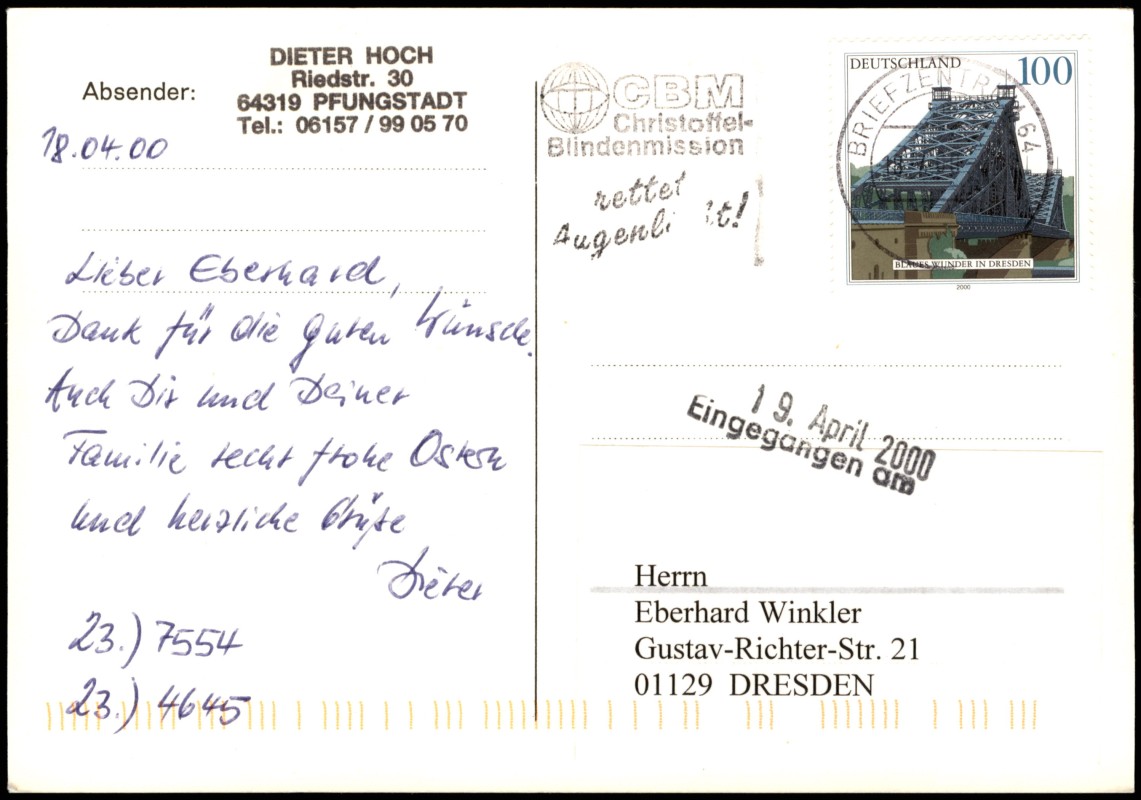 DIETER HOCH
Riedstr. 30
64319 PFUNGSTADT
Tel.: 06157 / 99 05 70
Absender:
18.04.00
Lieber Eberhard,
Dank für die guten Wünsche.
Auch Dir und Deiner
Familie recht frohe Ostern
und herzliche Grüße
Dieter
23.) 7554
23.) 4645
CBM
Christoffel-
Blindenmission
rettet
Augenli t!
DEUTSCHLAND 100
BRIEFZENTRUM 64
BLAUES WUNDER IN DRESDEN
2000
19. April 2000
Eingegangen am
Herrn
Eberhard Winkler
Gustav-Richter-Str. 21
01129 DRESDEN